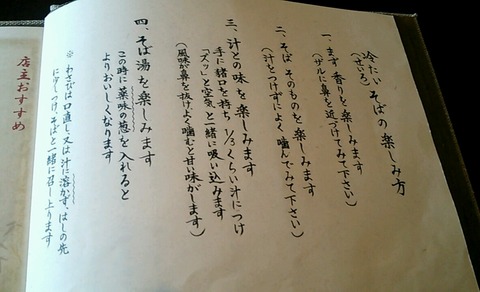 冷たい そばの楽しみ方
(ざる)
一、まず香りを楽しみます
(ザルに鼻を近づけてみて下さい)
二、そばそのものを楽しみます
(汁をつけずによく噛んでみて下さい)
三、汁との味を楽しみます
手に猪口を持ち 1/3くらい汁につけ
「ズッ」と空気と一緒に吸い込みます
(風味が鼻を抜けよく噛むと甘い味がします)
四、そば湯を楽しみます
この時に薬味の葱を入れると
よりおいしくなります
※わさびは口直し又は汁に溶かず、はしの先
に少しつけそばと一緒に召し上ります
店主おすすめ